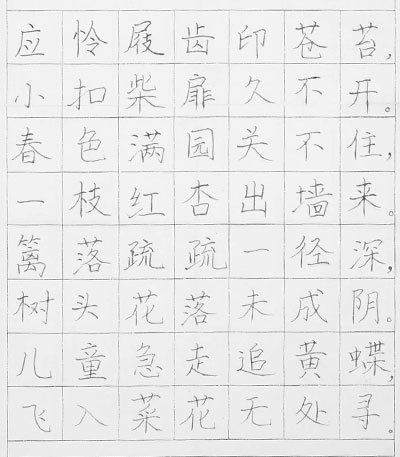 应怜屐齿印苍苔,
小扣柴扉久不开。
春色满园关不住,
一枝红杏出墙来。
篱落疏疏一径深,
树头花落未成阴。
儿童急走追黄蝶,
飞入菜花无处寻。